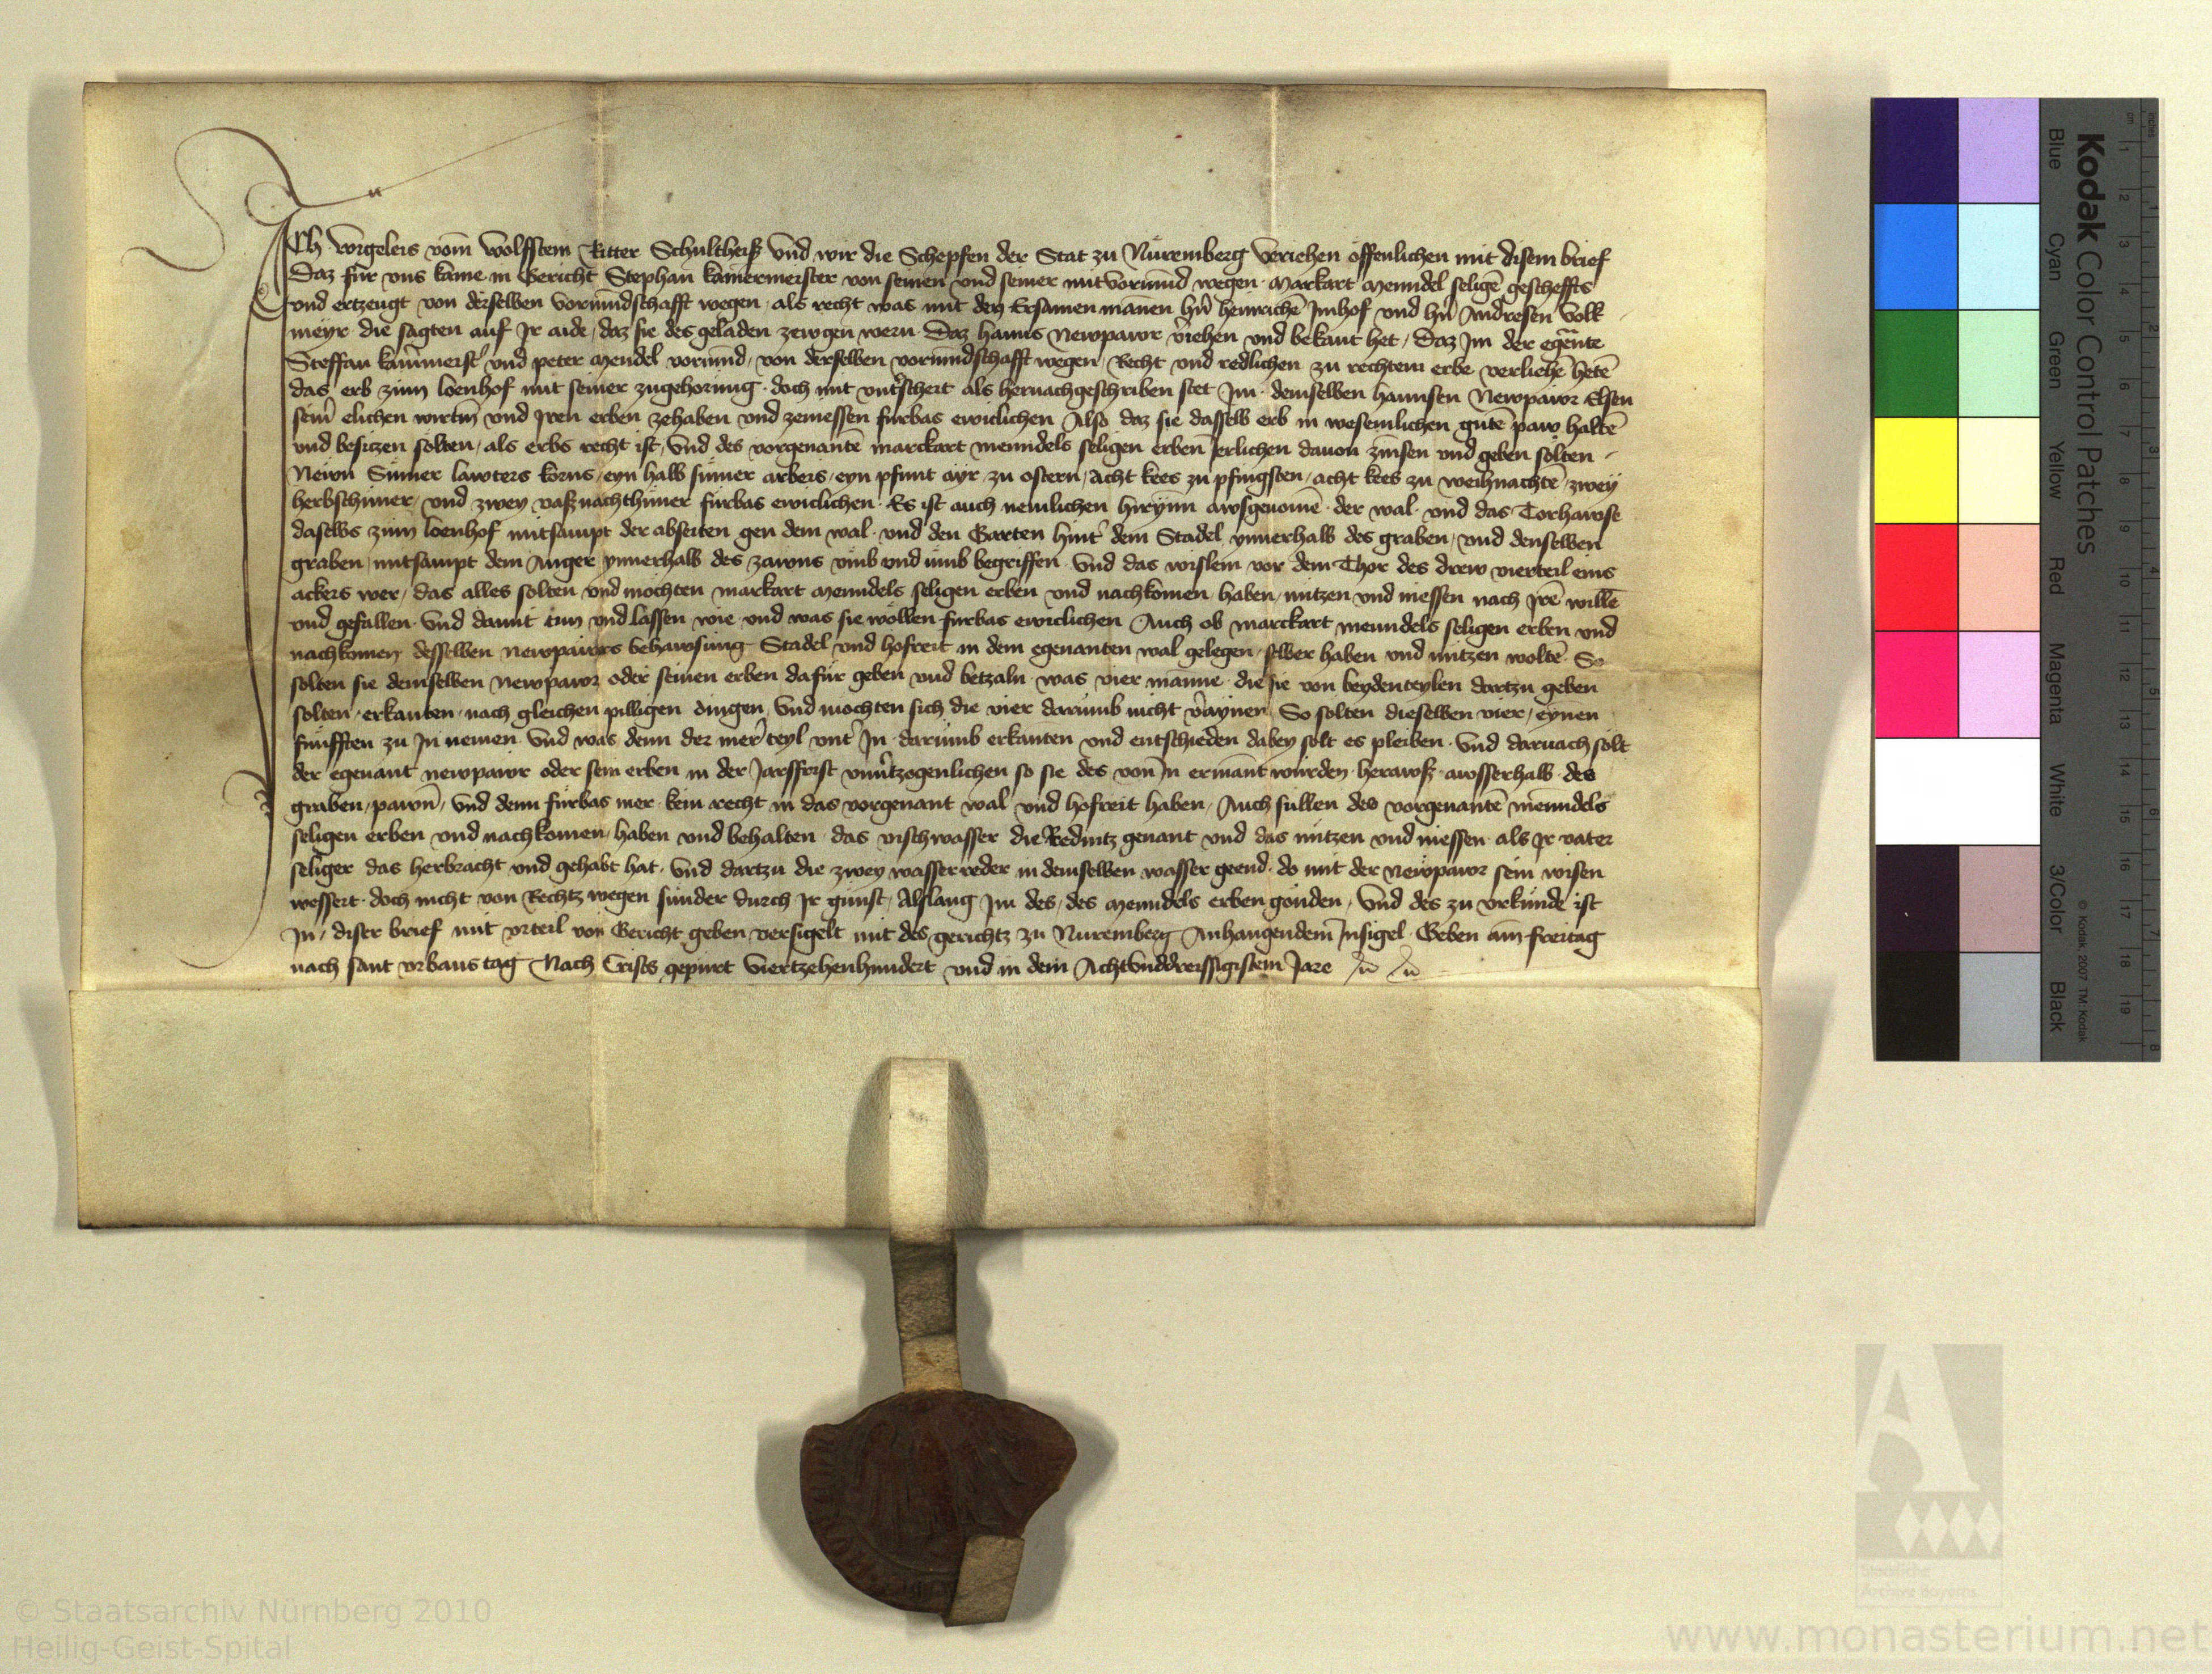 Ich Worgeleis vom Wolffstein Ritter Schultheiß Und wir die Schepfen der Stat zu Nüremberg Veriehen offenlichen mit disem brief
Daz für uns kame in Gericht Stephan kamermeister von seinen und seiner mitvormünd wegen Markart Menndel seligē gescheffts
und ertzeugt von derselben vormundschafft wegen als recht was mit den Ersamen mānen hn̄ heinrichē Imhof und hn̄ Andresen Volk
meyr die sagten auf Jr aide daz sie des geladen zewgen wern Daz hanns Newpawr v̄iehen und bekant het Daz Jm der egen̄te
Steffan kam̄meist̄ und peter Mendel vormünd von derselben vormundschafft wegen Recht und redlichen zu rechtem erbe verliehē hetē
das erb zum loenhof mit seiner zugehorung doch mit unt̄schert als hernachgeschriben stet Jm demselben hannsen Newpawr Elsen
sein̄ elichen wirtin und Jren erben zehaben und zeniessen fürbas ewiclichen Also daz sie dasselb erb in wesenlichen gutē paw haltē
und besitzen solten als erbs recht ist Und des vorgenantē marckart menndels seligen erben Jerlichen davon zinsen und geben solten
Newn Sümer lawters korns eyn halb sümer arbeis eyn pfunt ayr zu ostern acht kees zu pfingsten acht kees zu weihnachtē zwey
herbsthüner und zwey vaßnachthüner fürbas ewiclichen Es ist auch nemlichen hirynn awsgenomē der wal und das Torhawse
daselbs zum loenhof mitsampt der abseiten gen dem wal und den Garten hint̄ dem Stadel ynnerhalb des graben und denselben
graben mitsampt dem Anger ynnerhalb des zawns umb und umb begriffen Und das wislein vor dem Thor des drew vierteil eins
ackers wer das alles solten und mochten markart Menndels seligen erben und nachkomen haben nützen und niessen nach Jrē willē
und gefallen Und damit tun und lassen wie und was sie wöllen fürbas ewiclichen Auch ob marckart menndels seligen erben und
nachkomen desselben newpawrs behawsung Stadel und hofreit in dem egenanten wal gelegen selber haben und nützen woltē So
solten sie demselben newpawr oder seinen erben dafür geben und betzaln was vier manne die sie von beydenteylen dartzu geben
solten erkanten nach gleichen pilligen dingen Und mochten sich die vier darumb nicht v̄aynen So solten dieselben vier eynen
fünfften zu Jn nemen Und was denn der mer teyl unt̄ Jn darumb erkanten und entschieden dabey solt es pleiben Und darnach solt
der egenant newpawr oder sein erben in der Jarsfrist unv̄tzogenlichen so sie des von Jn ermant wurden herawß awsserhalb des
graben pawn̄ Und denn fürbas mer kein recht in das vorgenant wal und hofreit haben Auch süllen des vorgenantē menndels
seligen erben und nachkomen haben und behalten das vischwasser die Rednitz genant und das nützen und niessen als Jr vater
seliger das herbracht und gehabt hat Und dartzu die zwey wasserreder in demselben wasser geend do mit der newpawr sein wisen
wessert doch nicht von Rechtz wegen sünder durch Jr günst Alslang Jm des des Menndels erben gönden Und des zu urkünde ist
Jn diser brief mit urteil von Gericht geben versigelt mit des gerichtz zu Nuremberg Anhangendem Jnsigel Geben am freitag
nach sant urbans tag Nach Crists gepurt Viertzehenhundert und in dem AchtUnddreissigistem Jare
Kodak Color Control Patches
Blue Cyan Green Yellow Red Magenta White 3/Color Black
© Kodak 2007 TM: Kodak
inches 1 2 3 4 5 6 7 8
cm 1 2 3 4 5 6 7 8 9 10 11 12 13 14 15 16 17 18 19
© Staatsarchiv Nürnberg 2010
Heilig-Geist-Spital
Staatliche
Archive Bayerns
www.monasterium.net